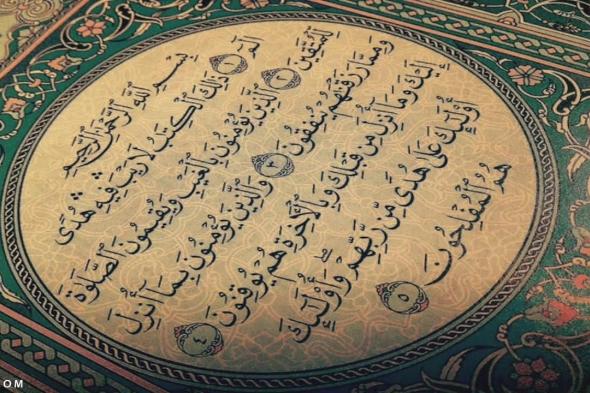 بِسْمِ اللَّهِ الرَّحْمَٰنِ الرَّحِيمِ
الٓمٓ ١ ذَٰلِكَ الْكِتَٰبُ لَا رَيْبَ فِيهِ هُدًى
لِّلْمُتَّقِينَ ٢ الَّذِينَ يُؤْمِنُونَ بِالْغَيْبِ وَيُقِيمُونَ الصَّلَوٰةَ
وَمِمَّا رَزَقْنَٰهُمْ يُنفِقُونَ ٣ وَالَّذِينَ يُؤْمِنُونَ بِمَا أُنزِلَ
إِلَيْكَ وَمَا أُنزِلَ مِن قَبْلِكَ وَبِالْآخِرَةِ هُمْ يُوقِنُونَ ٤
أُوْلَٰئِكَ عَلَىٰ هُدًى مِّن رَّبِّهِمْ وَأُوْلَٰئِكَ
هُمُ الْمُفْلِحُونَ ٥
OM